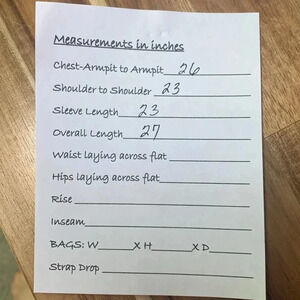 Measurements in inches
Chest-Armpit to Armpit 26
Shoulder to Shoulder 23
Sleeve Length 23
Overall Length 27
Waist laying across flat
Hips laying across flat
Rise
Inseam
BAGS: W______X H______X D______
Strap Drop